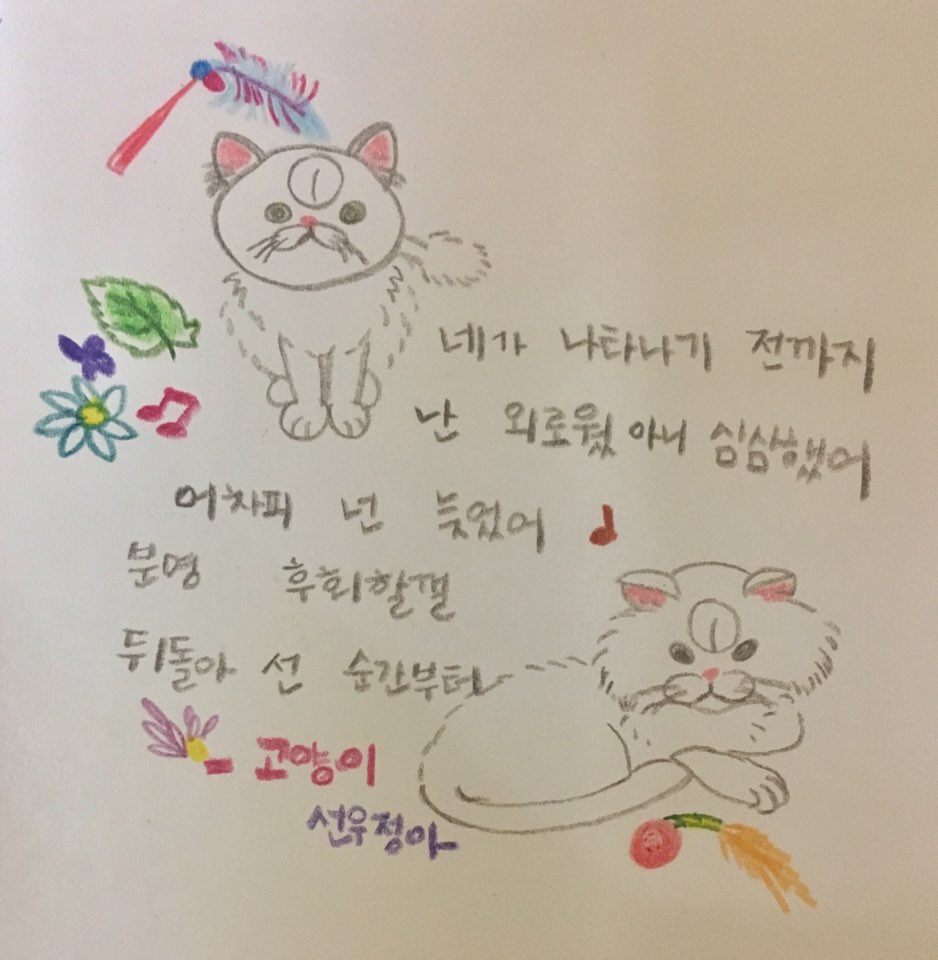 네가 나타나기 전까지
난 외로웠 아니 심심했어
어차피 넌 늦었어
분명 후회할걸
뒤돌아 선 순간부터
- 고양이
선우정아